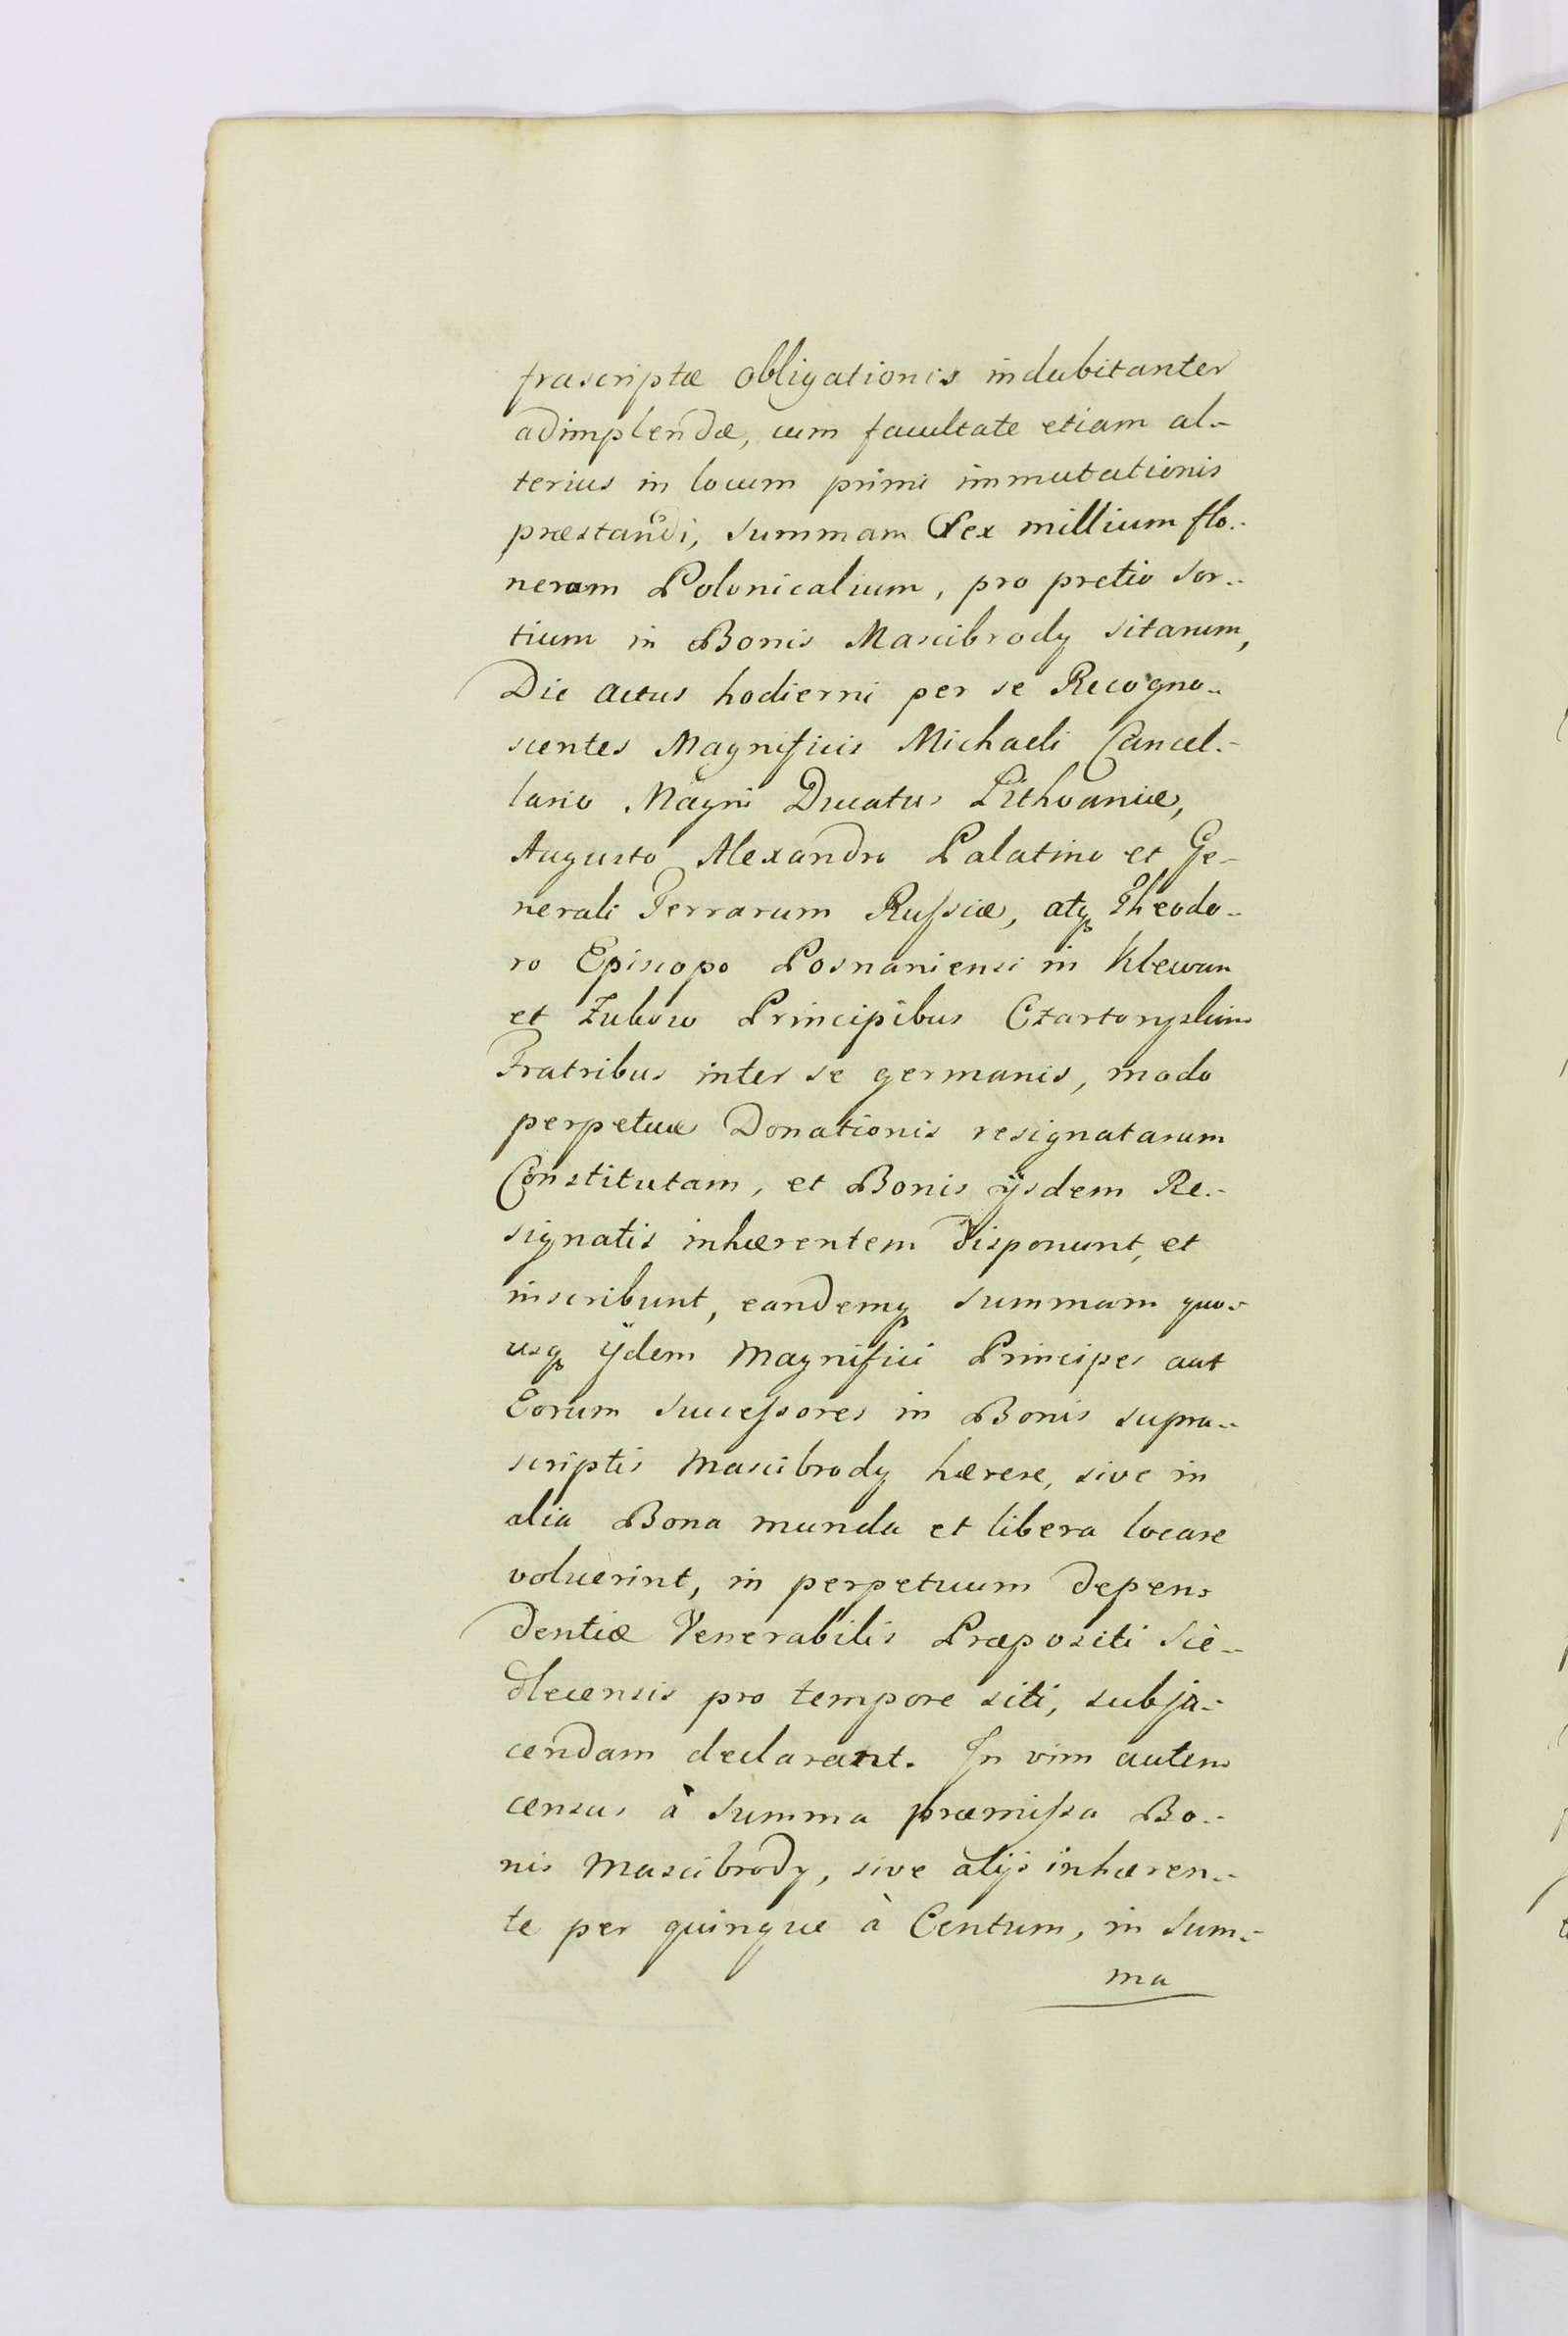 frascriptæ obligationis indubitanter
adimplendæ, cum facultate etiam al-
terius in locum primi immutationis
præstandi, summam Sex millium flo-
renorum Polonicalium, pro pretio sor-
tium in Bonis Mascibrody sitarum,
Die actus hodierni per se Recogno-
scentes Magnificis Michaeli Cancel-
lario Magni Ducatus Lithvaniæ,
Augusto Alexandro Palatino et Ge-
nerali Terrarum Rufsiæ, atq Theodo-
ro Episcopo Posnaniensi in Klewan
et Zukow Principibus Czartoryskim
Fratribus inter se germanis, modo
perpetuæ Donationis resignatarum
Constitutam, et Bonis ijsdem Re-
signatis inhærentem disponunt, et
inscribunt, eandemq summam quo-
usq ijdem Magnifici Principes aut
Eorum Succefsores in Bonis supra-
scriptis Mascibrody hærere, sive in
alia Bona munda et libera locare
voluerint, in perpetuum depen-
dentiæ Venerabilis Præpositi Sie-
dlecensis pro tempore siti, subja-
cendam declarant. In vim autem
census à Summa præmifsa Bo-
nis Mascibrody, sive alijs inhæren-
te per quinque à Centum, in Sum-
ma